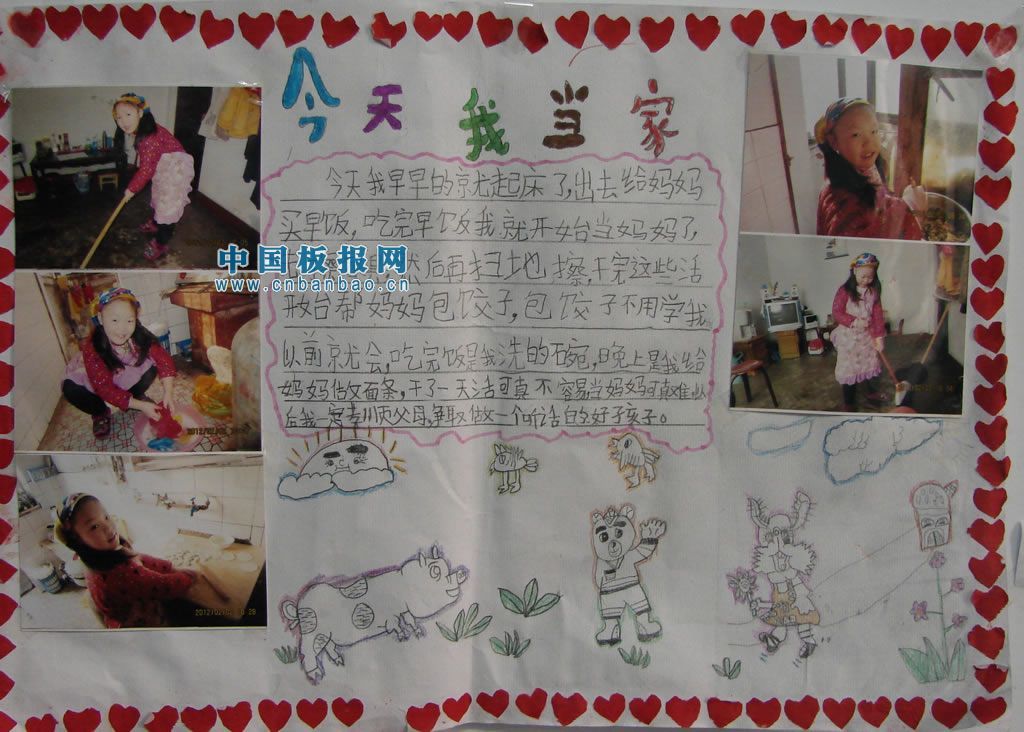 今天我当家
今天我早早的就起床了,出去给妈妈
买早饭,吃完早饭我就开始当妈妈了,
然后再扫地 擦,干完这些活
开始帮妈妈包饺子,包饺子不用学我
以前就会,吃完饭是我洗的碗,晚上是我给
妈妈做面条,干了一天活可真不容易当妈妈可真难以
后我一定孝顺父母,争取做一个听话的好孩子。
中国板报网
www.cnbanbao.cn